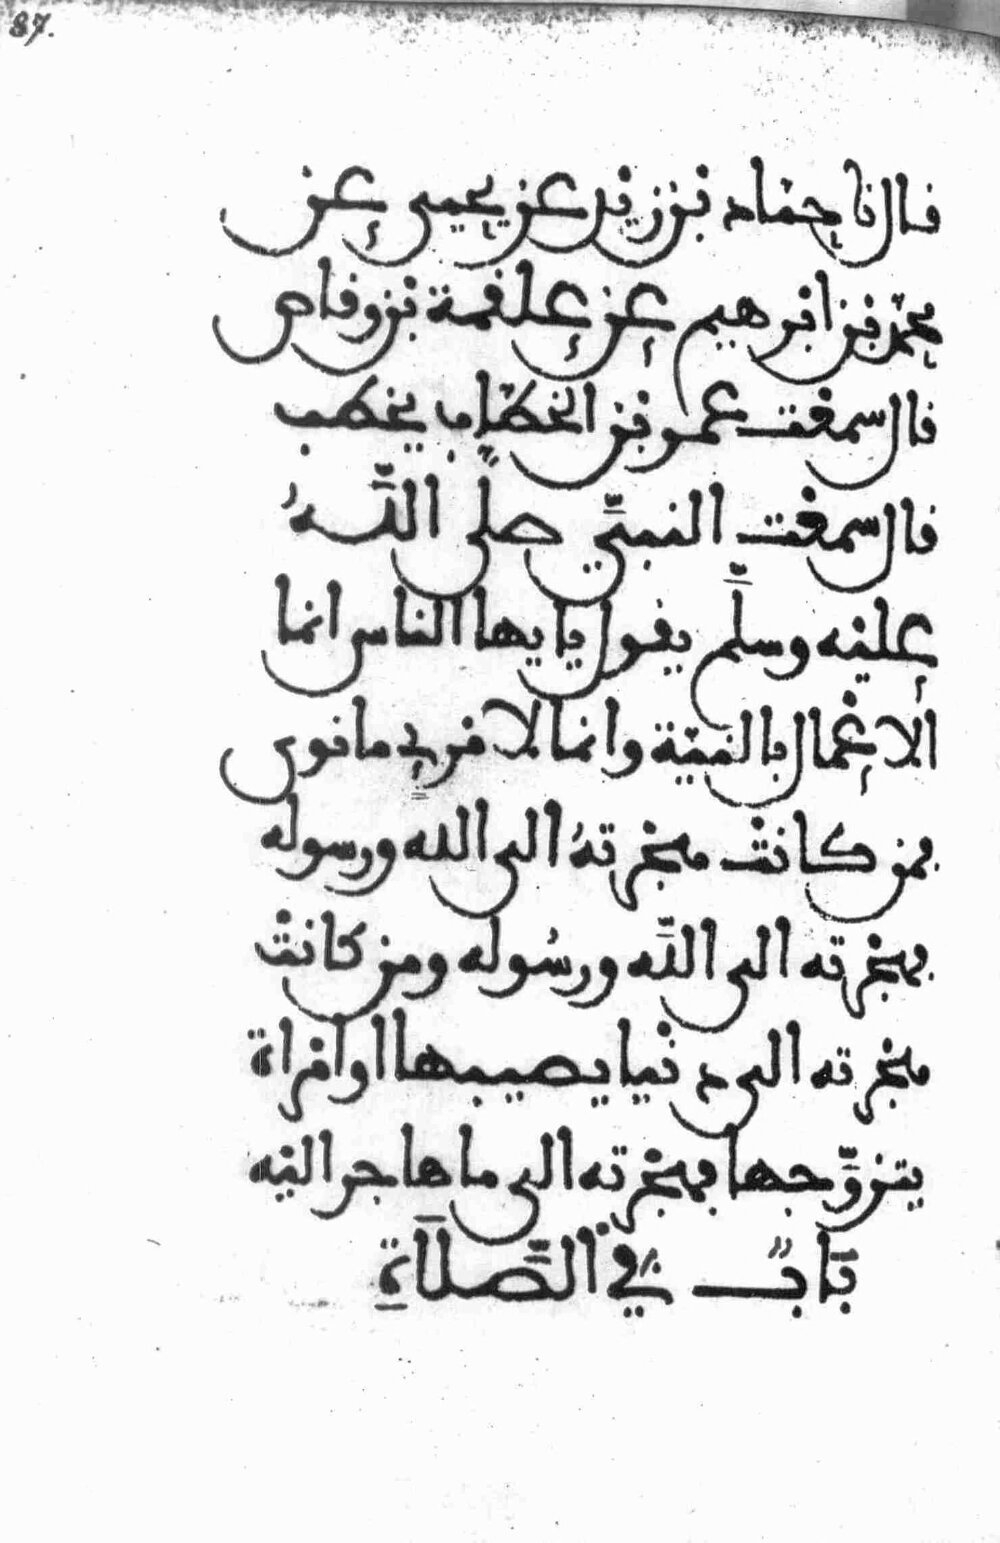 87.
قال نا حماد بن زيد عن يحيى عن
محمد بن ابرهيم عن علقمة بن وقاص
قال سمعت عمر بن الخطاب يخطب
قال سمعت النبي صلى اللهُ
عليه وسلَّم يقول يا يها الناس انما
الاعمال بالنية وانما لامرئ ما نوى
فمن كانتْ هجرتهُ الى الله ورسوله
فهجرته الى اللَّه ورسُوله ومن كانتْ
هجرته الى دنيا يصيبها او امراة
يتزوَّجها فهجرته الى ما هاجر اليه
بَابٌ في الصَّلَاةِ